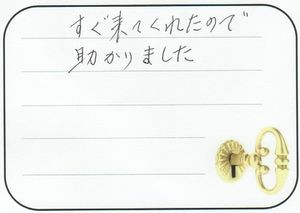 すぐ来てくれたので
助かりました